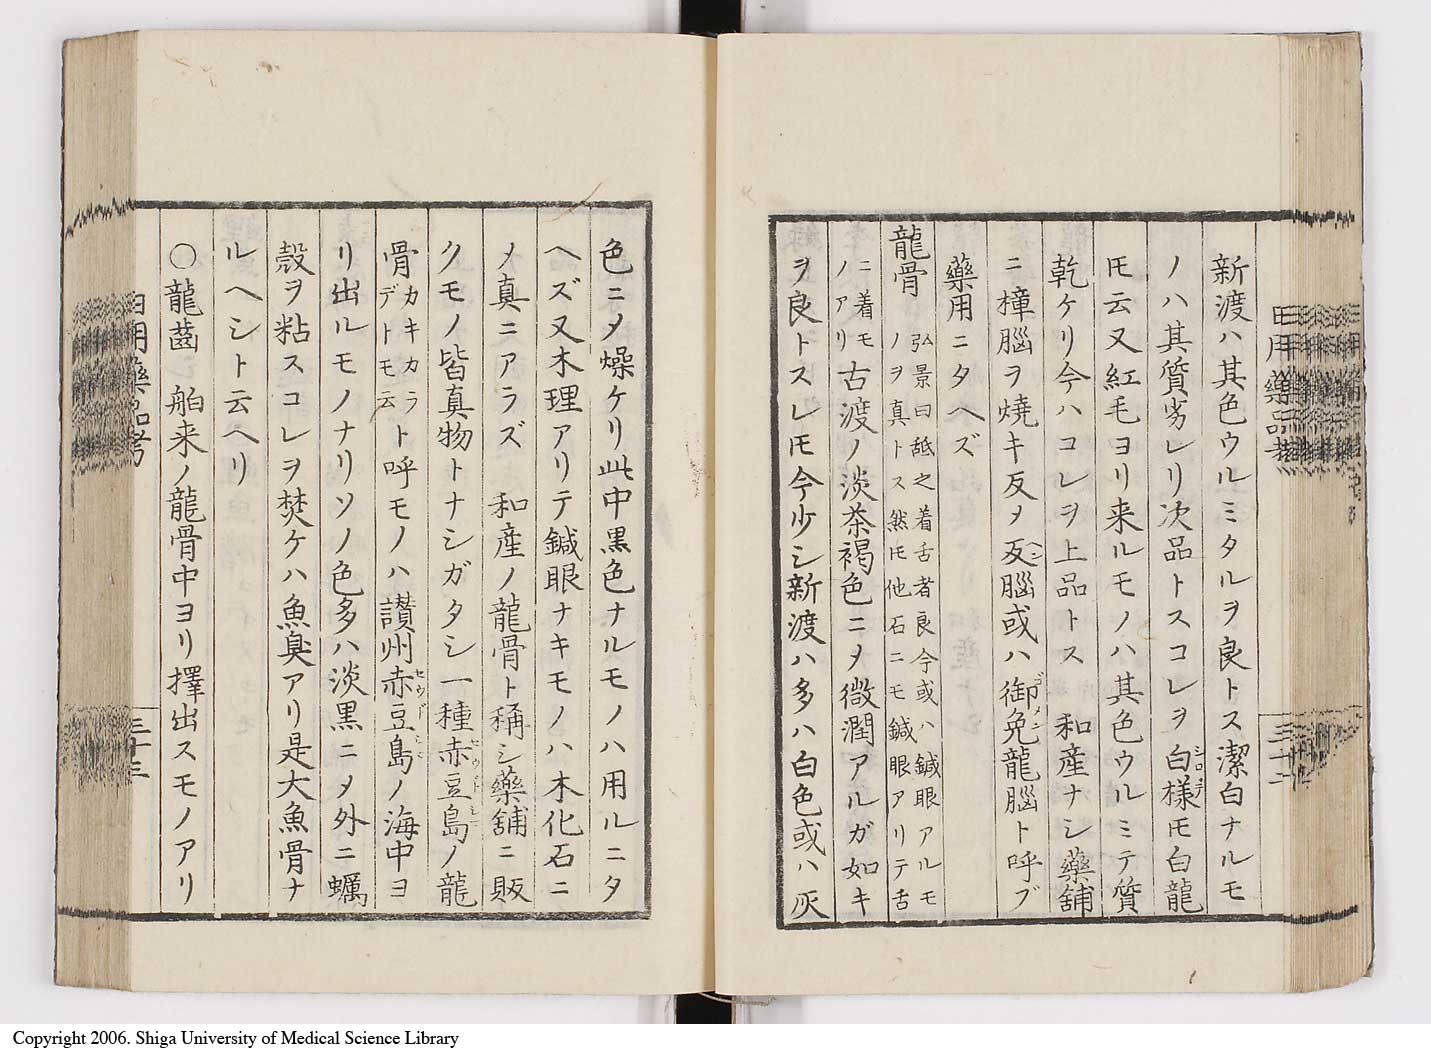 新渡ハ其色ウルミタルヲ良トス潔白ナルモ
ノハ其質劣レリ次品トスコレヲ白様𪜈白龍
𪜈云又紅毛ヨリ来ルモノハ其色ウルミテ質
乾ケリ今ハコレヲ上品トス 和産ナシ藥舗
ニ樟腦ヲ燒キ反〆反腦或ハ御免龍腦ト呼ブ
藥用ニタヘズ
龍骨 弘景曰舐之着舌者良今或ハ鍼眼アルモ
ノヲ真トス然𪜈他石ニモ鍼眼アリテ舌
ニ着モ
ノアリ
古渡ノ淡茶褐色ニ〆微潤アルガ如キ
ヲ良トスレ𪜈今少シ新渡ハ多ハ白色或ハ灰
色ニ〆燥ケリ此中黒色ナルモノハ用ルニタ
ヘズ又木理アリテ鍼眼ナキモノハ木化石ニ
〆真ニアラズ 和産ノ龍骨ト稱シ藥舖ニ販
クモノ皆真物トナシガタシ一種赤豆島ノ龍
骨
カキカラ
デトモ云
ト呼モノハ讃州赤豆島ノ海中ヨ
リ出ルモノナリソノ色多ハ淡黒ニ〆外ニ蠣
殻ヲ粘スコレヲ焚ケハ魚臭アリ是大魚骨ナ
ルヘシト云ヘリ
〇龍齒 舶来ノ龍骨中ヨリ擇出スモノアリ
三十三
Copyright 2006. Shiga University of Medical Science Library